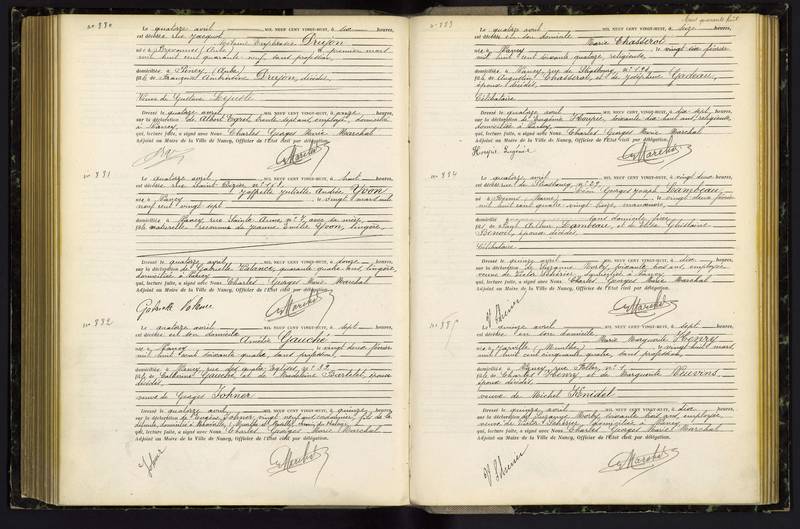 N° 330
Le quatorze avril MIL NEUF CENT VINGT-HUIT, à dix heures,
est décédée rue Jacquot
Victoire Euphrasie Drujon
née à (Aube), le premier mars
mil huit cent quarante neuf sans profession,
domiciliée à Piney (Aube)
fille de François Drujon, décédés.
Veuve de Gustave
Dressé le quatorze avril MIL NEUF CENT VINGT-HUIT, à onze heures,
sur la déclaration de Albert trente sept ans, employé, domicilié
à Nancy
qui, lecture faite, a signé avec Nous Charles Georges Marie Marchal
Adjoint au Maire de la Ville de Nancy, Officier de l'État civil par délégation.
N° 331
Le quatorze avril MIL NEUF CENT VINGT-HUIT, à huit heures,
est décédée rue Saint
Juliette Andrée Yvon
née à Nancy, le vingt avril mil
neuf cent vingt sept
domiciliée à Nancy rue Sainte Anne, n° 7, avec sa mère,
fille naturelle reconnue de Jeanne Emilie Yvon, lingère,
Dressé le quatorze avril MIL NEUF CENT VINGT-HUIT, à douze heures,
sur la déclaration de Gabrielle quarante quatre ans, lingère,
domiciliée à Nancy
qui, lecture faite, a signé avec Nous Charles Georges Marie Marchal
Adjoint au Maire de la Ville de Nancy, Officier de l'État civil par délégation.
N° 332
Le quatorze avril MIL NEUF CENT VINGT-HUIT, à sept heures,
est décédée en son domicile
Amélie Gauché
née à Nancy, le vingt deux février
mil huit cent soixante quatre, sans profession,
domiciliée à Nancy, rue des quatre églises, n° 32
fille de Gauché et de Madeleine Bertelet, époux
décédés.
veuve de Georges Johner
Dressé le quatorze avril MIL NEUF CENT VINGT-HUIT, à quinze heures,
sur la déclaration de Eugène Johner, vingt neuf ans, cordonnier, fils de la
défunte, domicilié à
qui, lecture faite, a signé avec Nous Charles Georges Marie Marchal
Adjoint au Maire de la Ville de Nancy, Officier de l'État civil par délégation.
Johner
N° 333
Le quatorze avril MIL NEUF CENT VINGT-HUIT, à seize heures,
est décédée en son domicile
Marie Chasserot
née à Nancy, le vingt deux février
mil huit cent cinquante quatre, religieuse,
domiciliée à Nancy, rue de Strasbourg
fille de Augustin Chasserot et de Joséphine Gadeau,
époux décédés.
Célibataire
Dressé le quatorze avril MIL NEUF CENT VINGT-HUIT, à dix sept heures,
sur la déclaration de Eugénie soixante dix huit ans, religieuse,
domiciliée à Nancy
qui, lecture faite, a signé avec Nous Charles Georges Marie Marchal
Adjoint au Maire de la Ville de Nancy, Officier de l'État civil par délégation.
N° 334
Le quatorze avril MIL NEUF CENT VINGT-HUIT, à vingt deux heures,
est décédé rue de Strasbourg, n° 27
Léon Georges Joseph Lambeau
né à Reims (Marne), le vingt deux février
mil huit cent quatre vingt onze, manœuvre,
domicilié sans domicile fixe
fils de Paul Arthur Lambeau, et de Ghislaine
Benoit, époux décédés.
Célibataire
Dressé le quinze avril MIL NEUF CENT VINGT-HUIT, à dix heures,
sur la déclaration de Suzanne Morby, soixante trois ans, employée,
veuve de Victor domiciliée à Nancy
qui, lecture faite, a signé avec Nous Charles Georges Marie Marchal
Adjoint au Maire de la Ville de Nancy, Officier de l'État civil par délégation.
N° 335
Le quinze avril MIL NEUF CENT VINGT-HUIT, à sept heures,
est décédée en son domicile
Marie Marguerite Henry
née à Jarville (Meurthe), le vingt huit mars
mil huit cent cinquante quatre, sans profession,
domiciliée à Nancy, rue
fille de Charles Henry et de Marguerite Neuvins,
époux décédés.
veuve de Michel
Dressé le quinze avril MIL NEUF CENT VINGT-HUIT, à dix heures,
sur la déclaration de Suzanne Morby, soixante trois ans, employée,
veuve de Victor domiciliée à Nancy
qui, lecture faite, a signé avec Nous Charles Georges Marie Marchal
Adjoint au Maire de la Ville de Nancy, Officier de l'État civil par délégation.